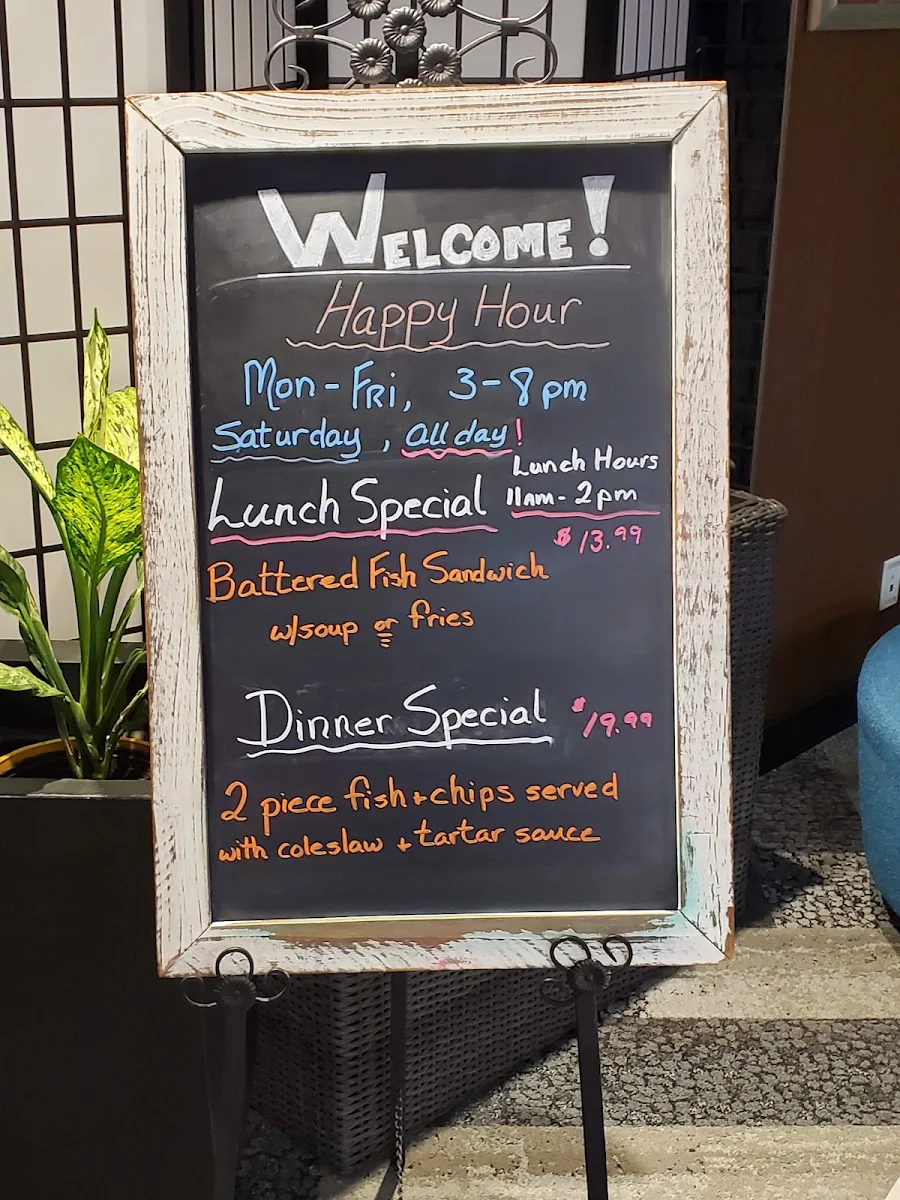 WELCOME!
Happy Hour
Mon-Fri, 3-8pm
Saturday, all day!
Lunch Hours
11am-2pm
Lunch Special
$13.99
Battered Fish Sandwich
w/soup or fries
Dinner Special $19.99
2 piece fish+chips served
with coleslaw + tartar sauce